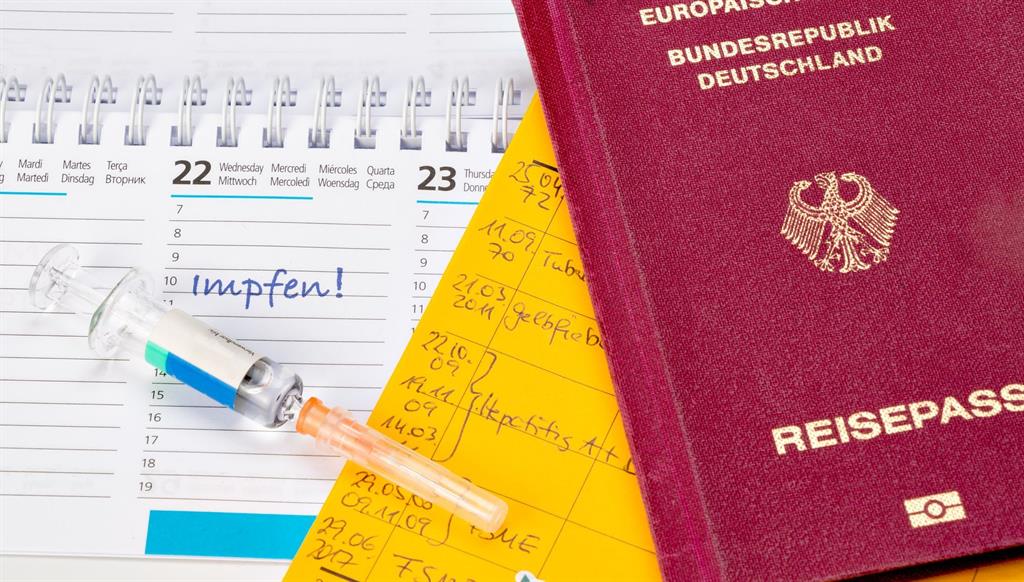 Mardi Martes Terça
Martedì Dinsdag Вторник
22 Wednesday Mercredi Miércoles Quarta
Mittwoch Mercoledì Woensdag Среда
23
7
8
9
10 Impfen!
11
14
15
16
17
18
19
7
8
9
10
11
25.04.
72
11.09.
70
21.03.
2011 Gelbfiebe
22.10.
09
19.11
09 Hepatitis A+
14.03
29.05.00
09.11.09 FSME
29.06.
2017 FSME
EUROPÄISCH
BUNDESREPUBLIK
DEUTSCHLAND
REISEPASS